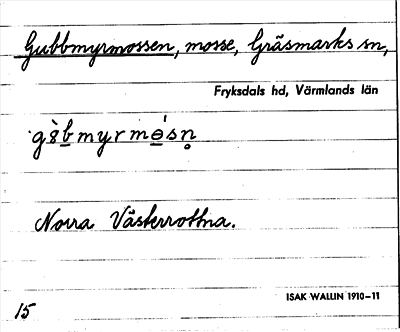 Gubbmyrmossen, mosse, Gräsmarks sn,
Fryksdals hd, Värmlands län
Norra Västerrottna.
ISAK WALLIN 1910–11
15